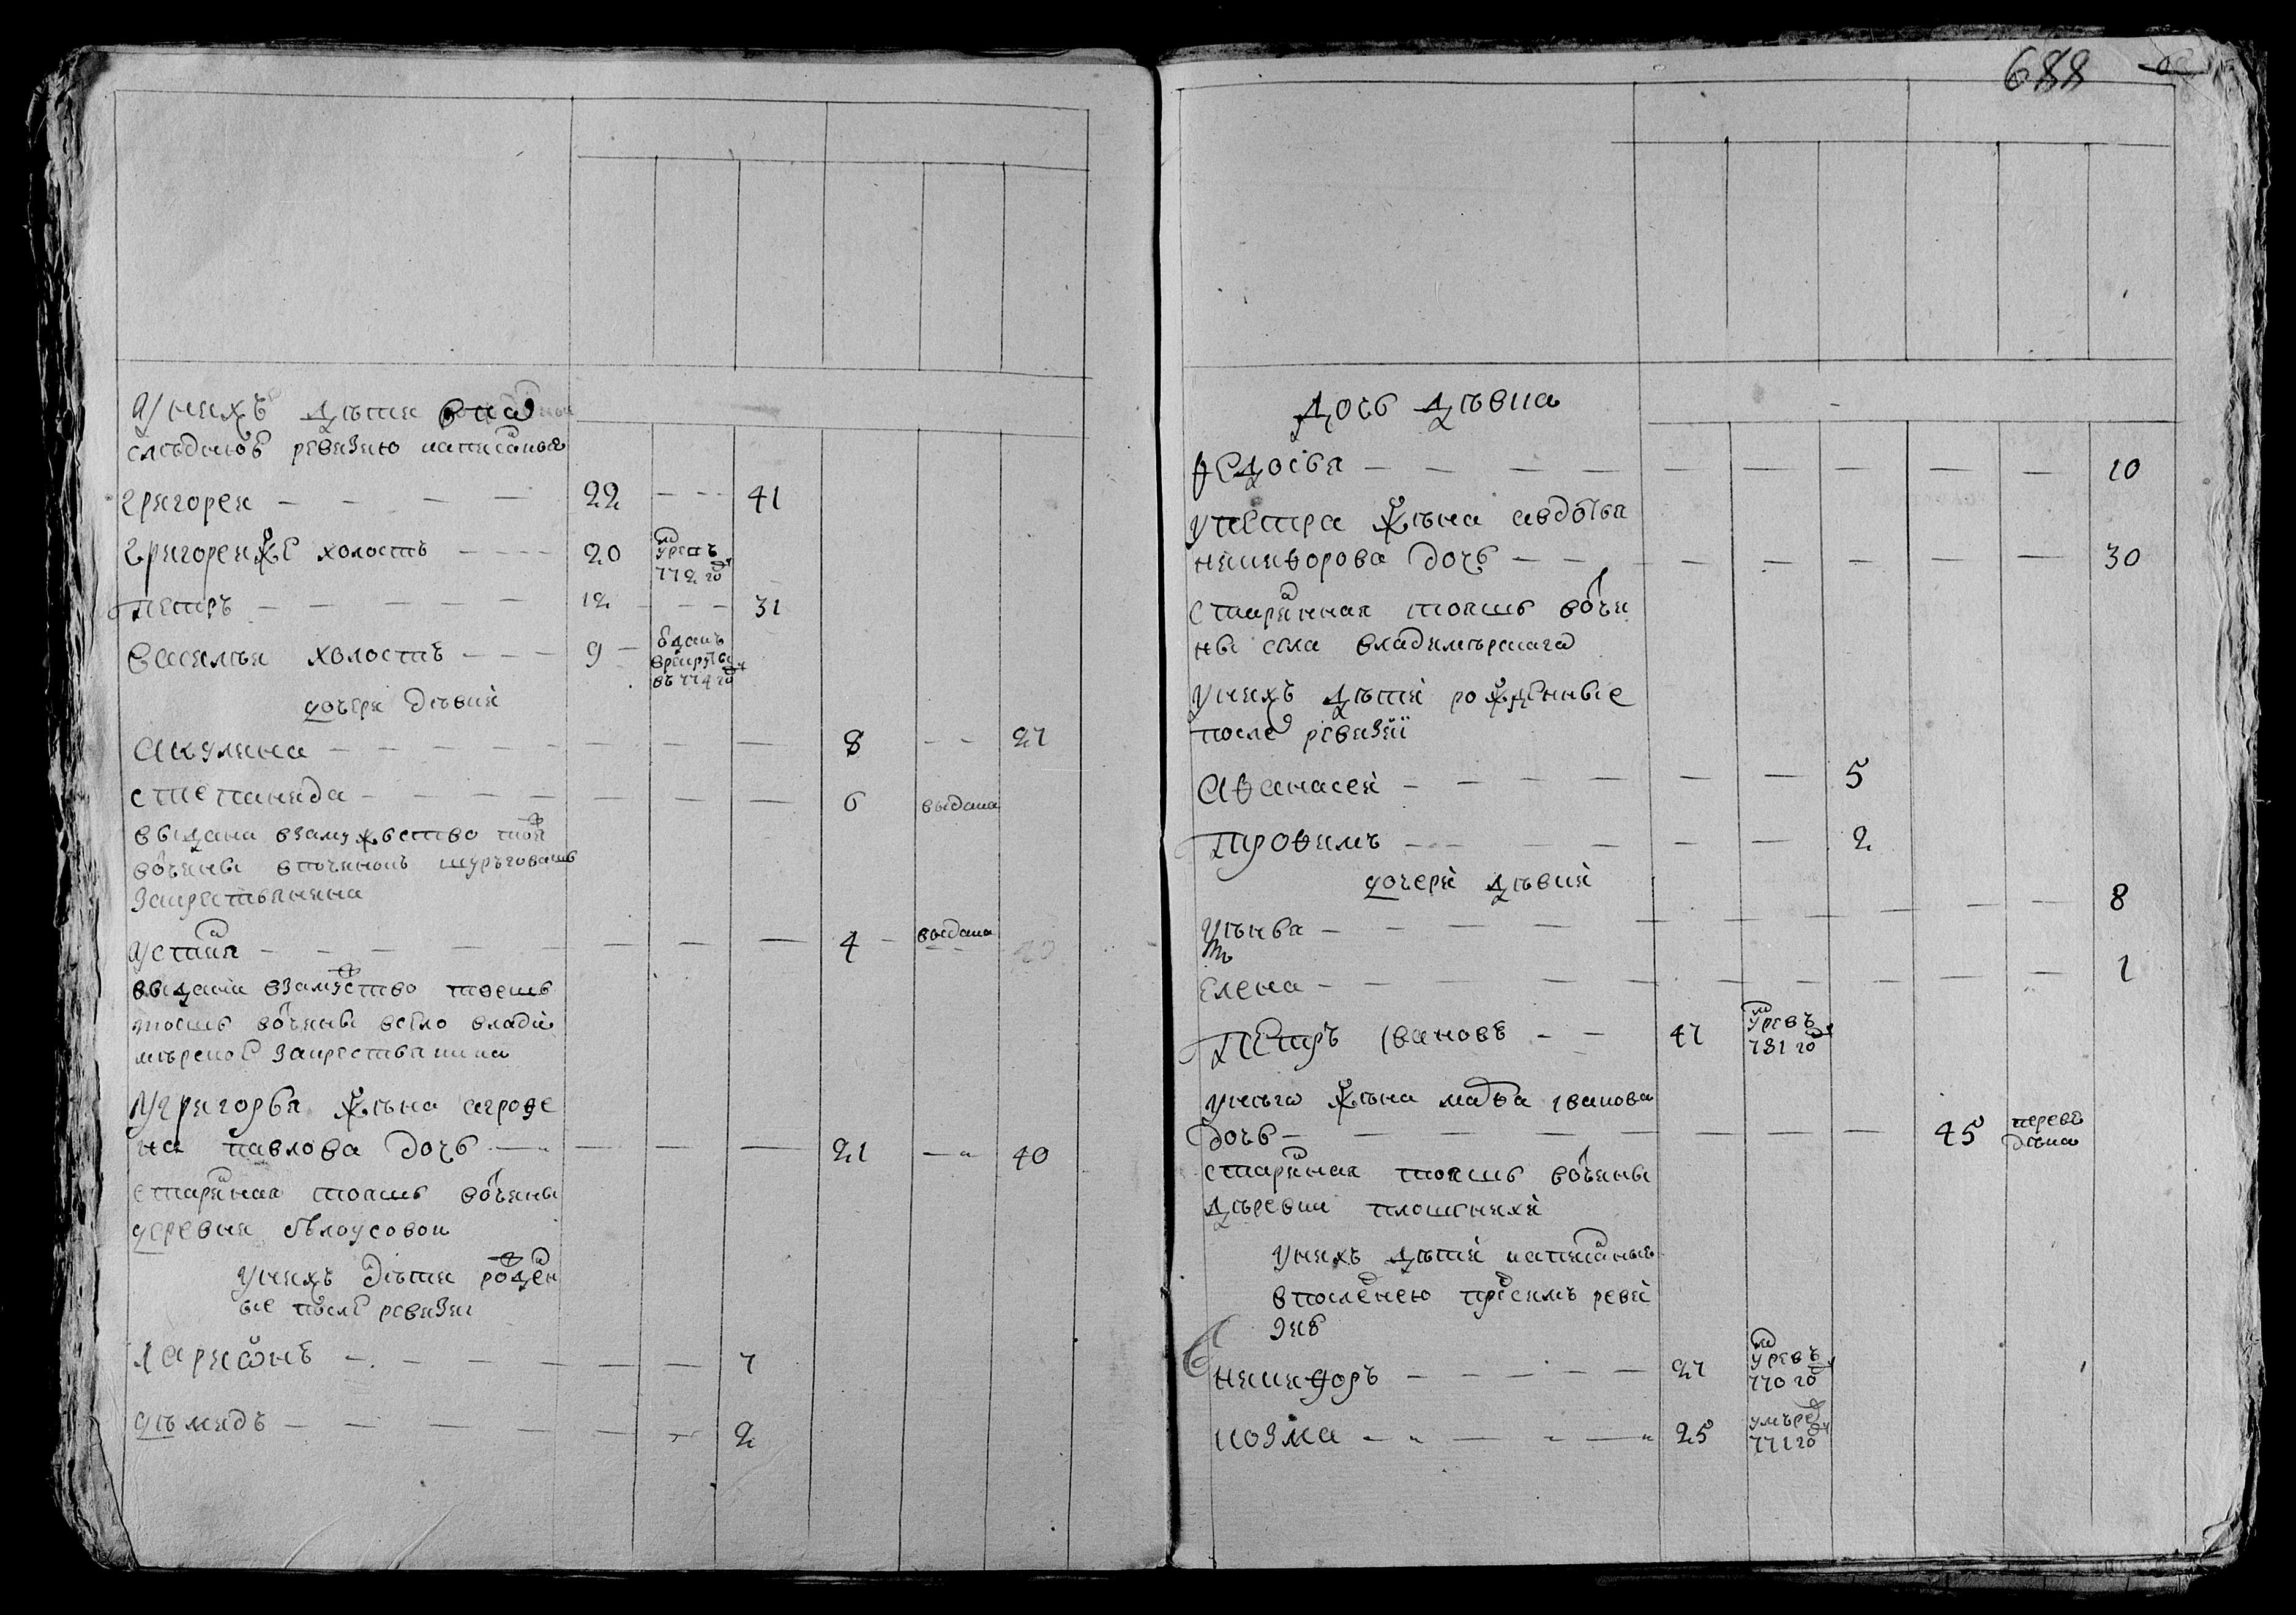 688
У нихъ дѣти
следнюю ревизию написаныя
Григореи — — — — 22 — — 41
Григореи же холостъ — — — 20 умре въ 772 году
Петръ — — — — — 12 — — 31
Василеи холостъ — — — 9 — одань в рекруты въ 774 году
дочери девки
Акулина — — — — — — — — 8 — — 27
Степанида — — — — — — — — 6 выдана
выдана взамужвество тоя
вотчины впочинокъ
закрестьянина
Устинья — — — — — — — — 4 — выдана
выдана взамуство тоешь
тоешь вотчины всело влади
мѣрское закрестьянина
У григорья жена агрофе
на павлова дочь — — — — 21 — 40
старинная тояшь вотчины
деревни бѣлоусовои
У нихъ дѣти рожден
ые после ревизии
Ларионъ — — — — — — — 7
Дѣмидъ — — — — — — 2
дочь дѣвка
Федосья — — — — — — — — — 10
У петра жена авдотья
никифорова дочь — — — — — — — — 30
старинная тояшь вотчи
ны села владимѣрскаго
У нихъ дети рожденные
после ревизии
Афанасеи — — — — — — 5
Трофимъ — — — — — — 2
дочери дѣвки
— — — — — — — — — 8
Елена — — — — — — — — — 1
Петръ Ивановъ — — 47 умре въ 781 году
У него жена мавра иванова
дочь — — — — — — — — 45 переве дена
старинная тояшь вотчины
дѣревни плошкнихи
У нихъ дети написаныя
впоследнею пресемъ реви
зию
Никифоръ — — — — — 27 умре въ 770 году
Козма — — — — — 25 умъре 771 году